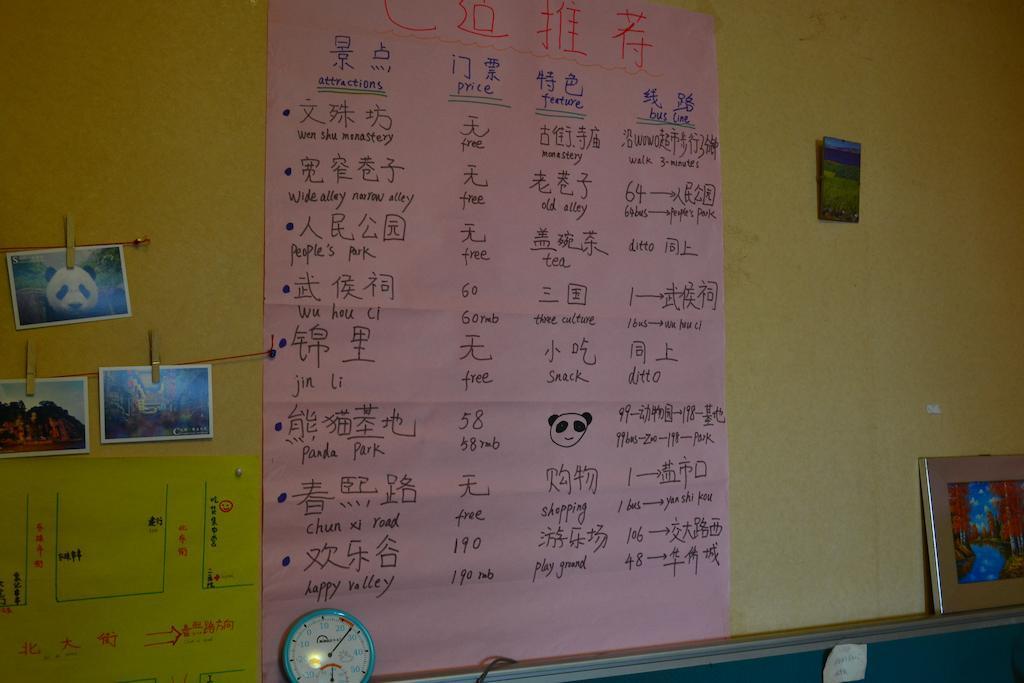 推荐
景点 门票 特色 线路
attractions price feature bus line
文殊坊 无 古街、寺庙 沿wowo超市步行3分钟
wen shu monastery free monastery walk 3-minutes
宽窄巷子 无 老巷子 64→人民公园
wide alley narrow alley free old alley 64bus→people's park
人民公园 无 盖碗茶 ditto 同上
people's park free tea
武侯祠 60 三国 1→武侯祠
wu hou ci 60rmb three culture 1bus→wu hou ci
锦里 无 小吃 同上
jin li free snack ditto
熊猫基地 58 99→动物园→198→基地
panda park 58rmb 99bus→zoo→198→park
春熙路 无 购物 1→盐市口
chun xi road free shopping 1bus→yan shi kou
欢乐谷 190 游乐场 106→交大路西
happy valley 190rmb play ground 48→华侨城
北大街